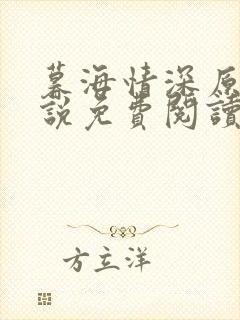 慕海情深原
說免費閱讀
方立洋